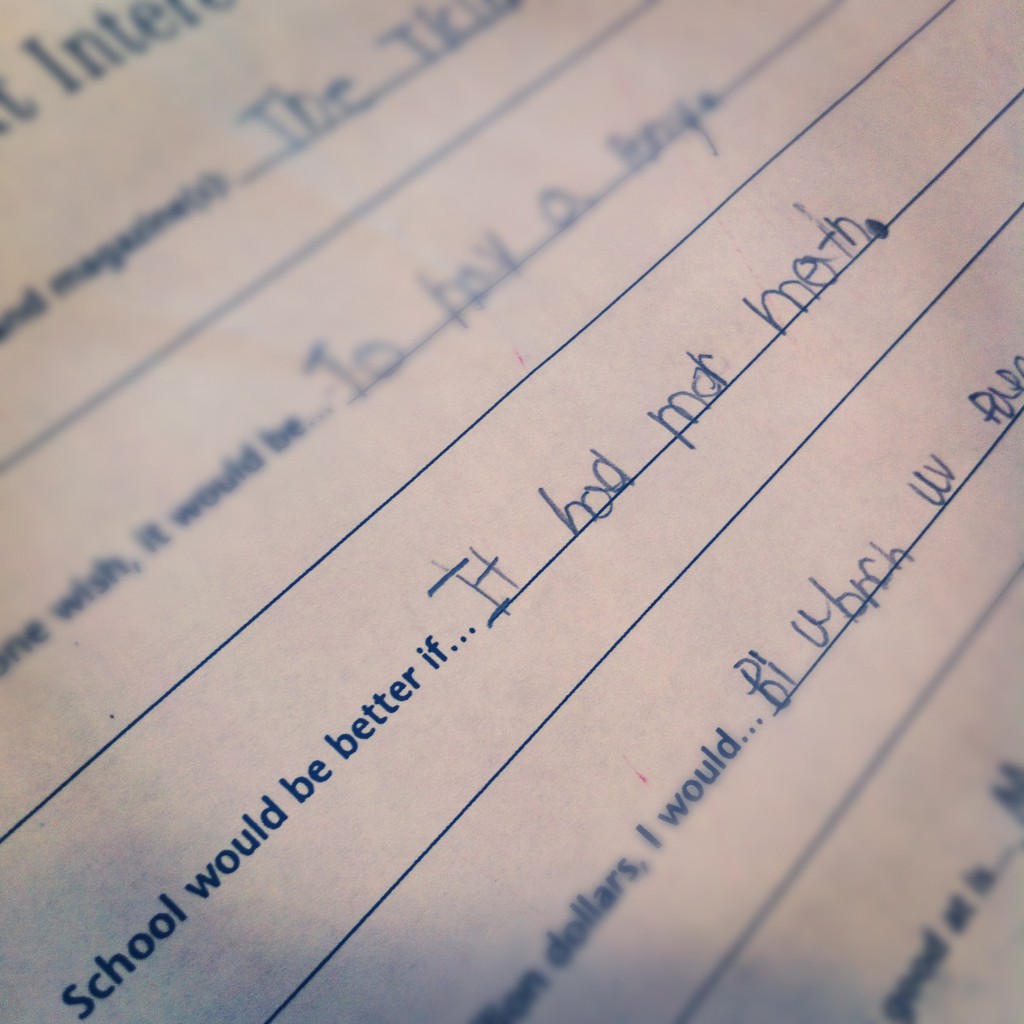 t Inter
nd magazine(s): The
one wish, it would be... To hav a
School would be better if... It had mor math.
llion dollars, I would... Bi
good at is... M